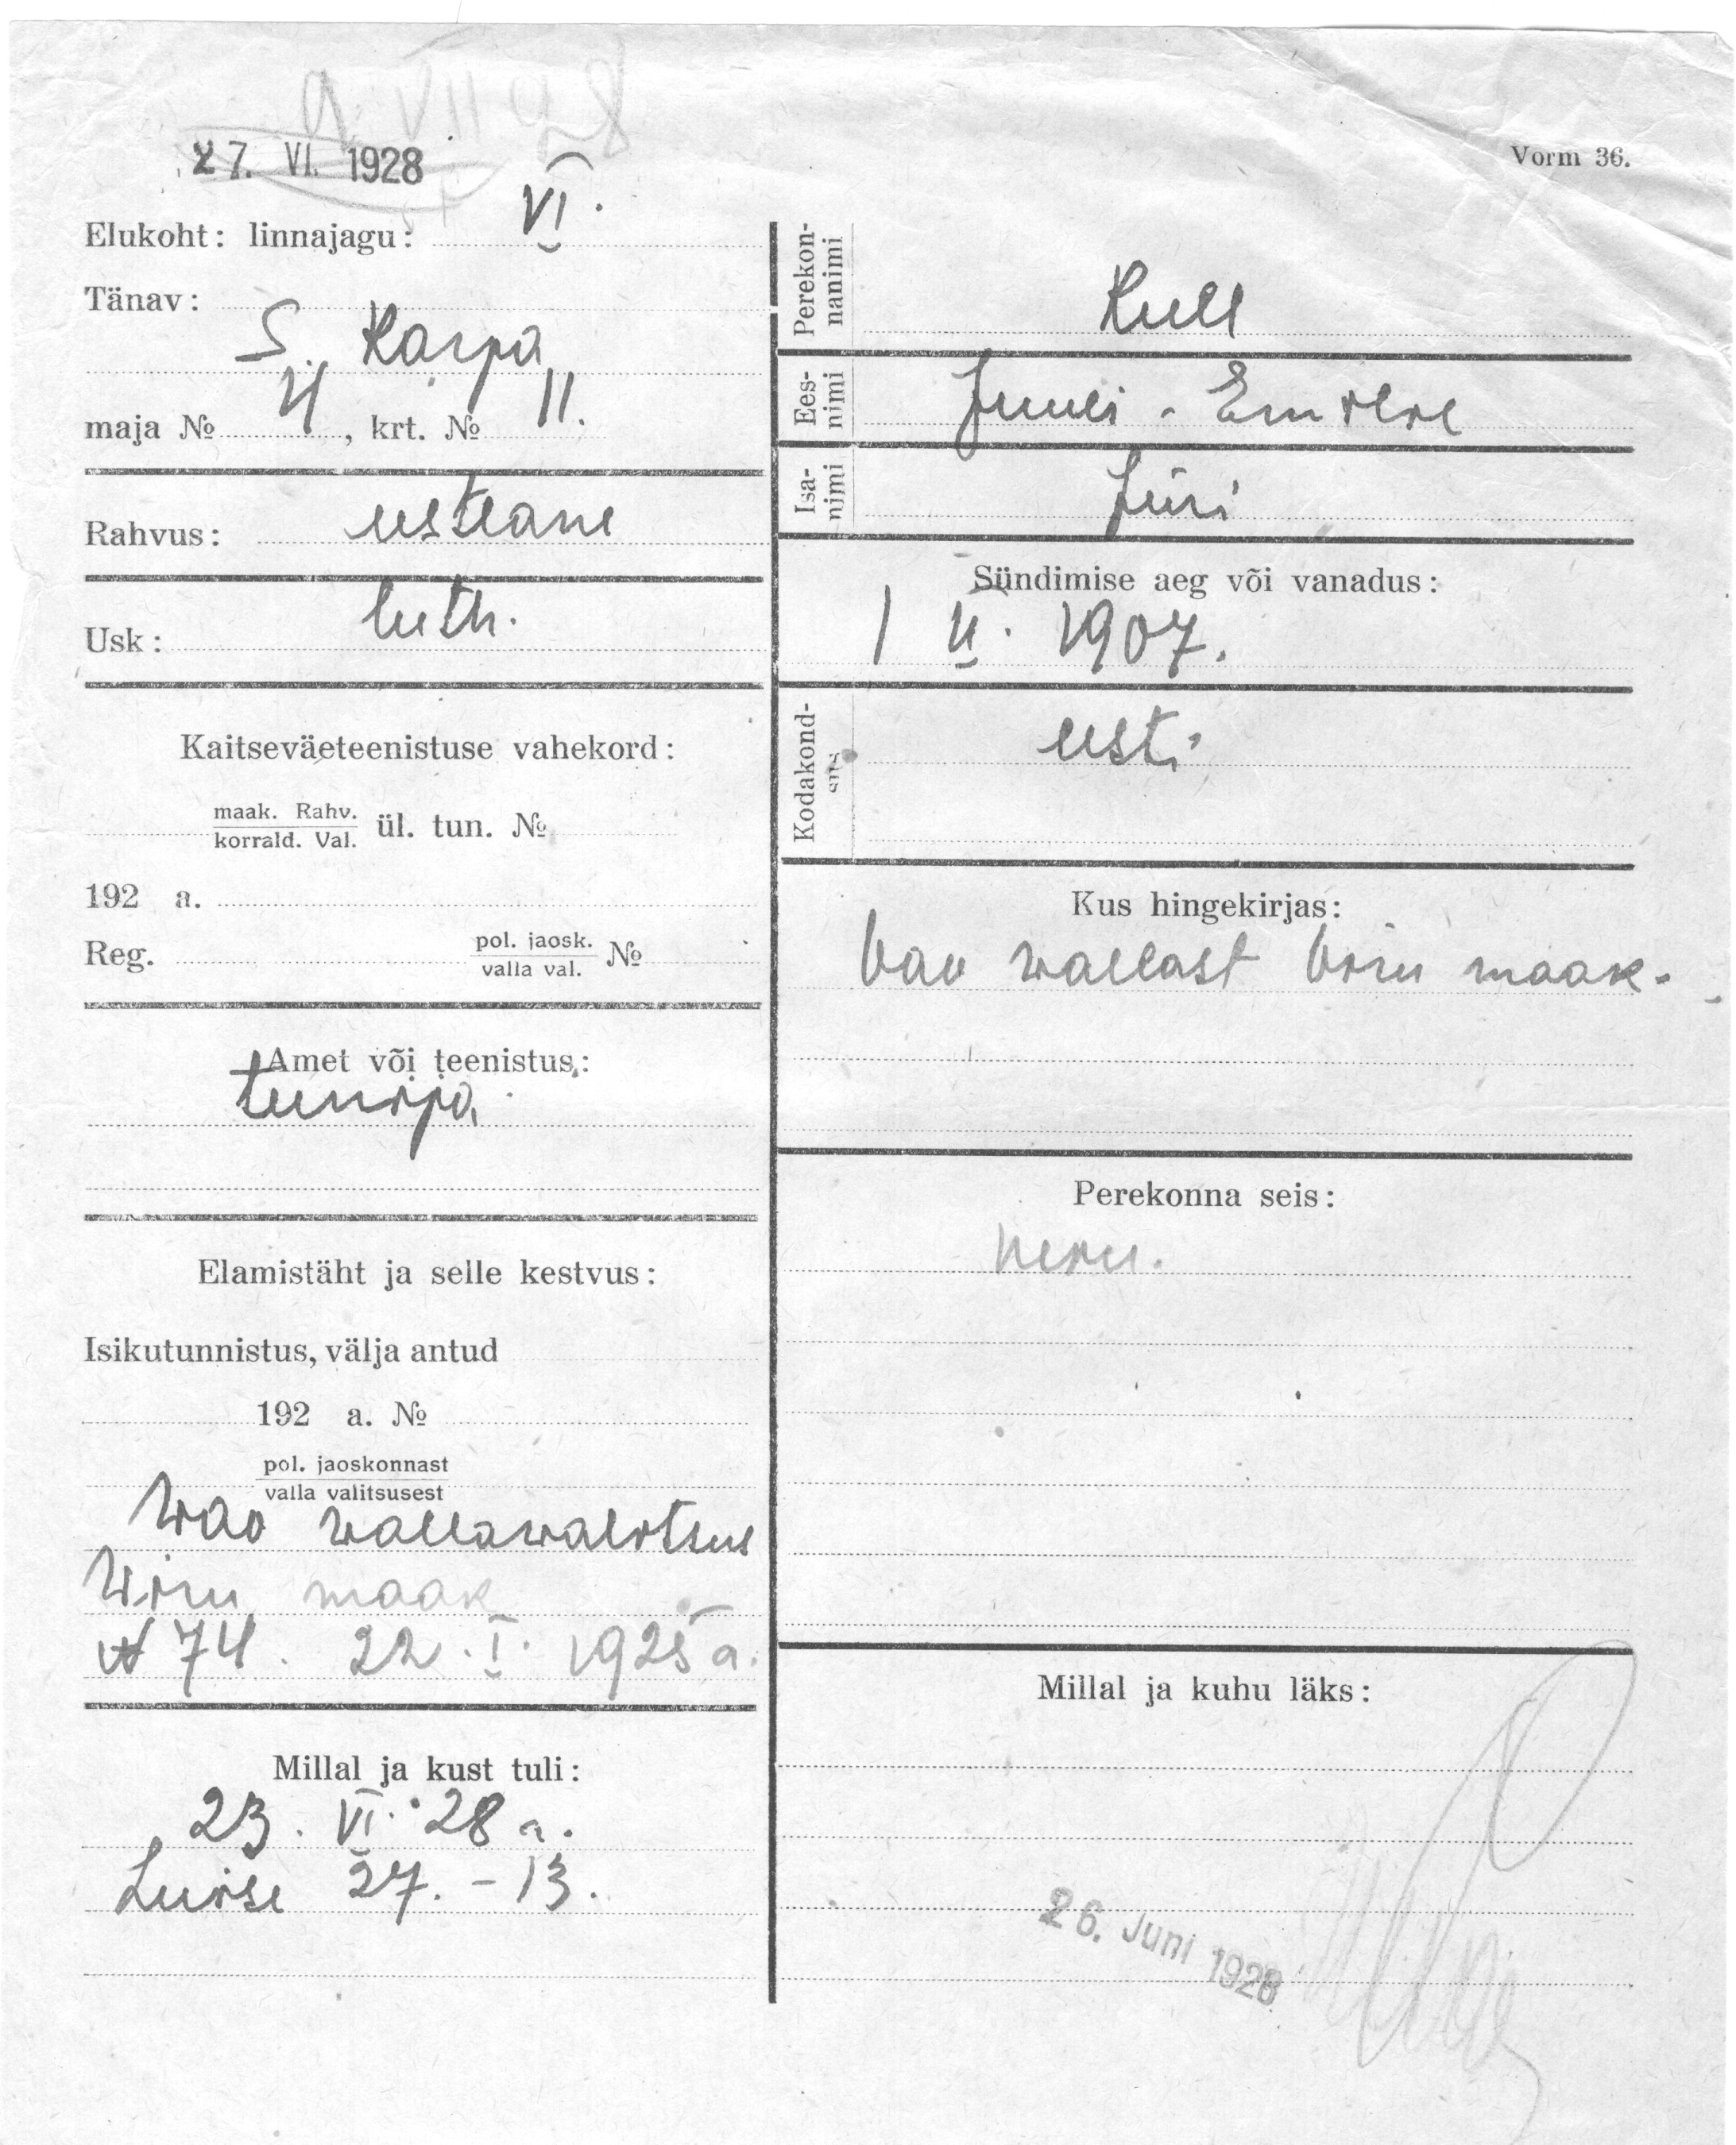 9 VII 28
27. VI. 1928
Vorm 36.
Elukoht: linnajagu: VI.
Tänav:
S. Karpa
maja № 4, krt. № 11.
Rahvus: eestlane
Usk: luth.
Kaitseväeteenistuse vahekord:
maak. Rahv.
korrald. Val.
ül. tun. №
192 a.
Reg. pol. jaosk. №
valla val.
Amet või teenistus:
teenija
Elamistäht ja selle kestvus:
Isikutunnistus, välja antud
192 a. №
pol. jaoskonnast
valla valitsusest
Wao wallawalitsus
Wiru maak
№ 74. 22. I. 1925 a.
Millal ja kust tuli:
23. VI. 28 a.
Luise 27. - 13.
Perekon-
nanimi
Kull
Ees-
nimi
Juuli - Emilie
Isa-
nimi
Jüri
Sündimise aeg või vanadus:
1 II. 1907.
Kodakond-
sus
eesti
Kus hingekirjas:
Vao wallast Viru maak.
Perekonna seis:
Millal ja kuhu läks:
26. Juni 1928